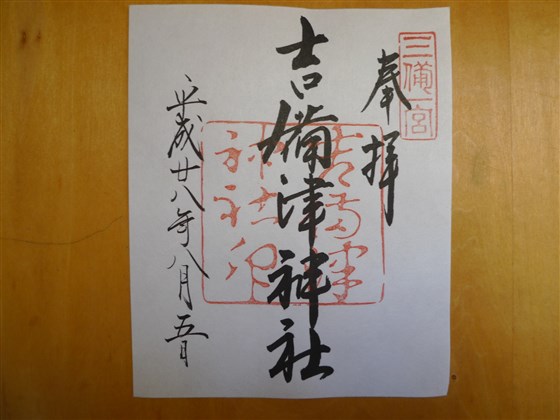 三備一宮
奉拝
吉備津神社
吉備津神社印
平成廿八年八月五日